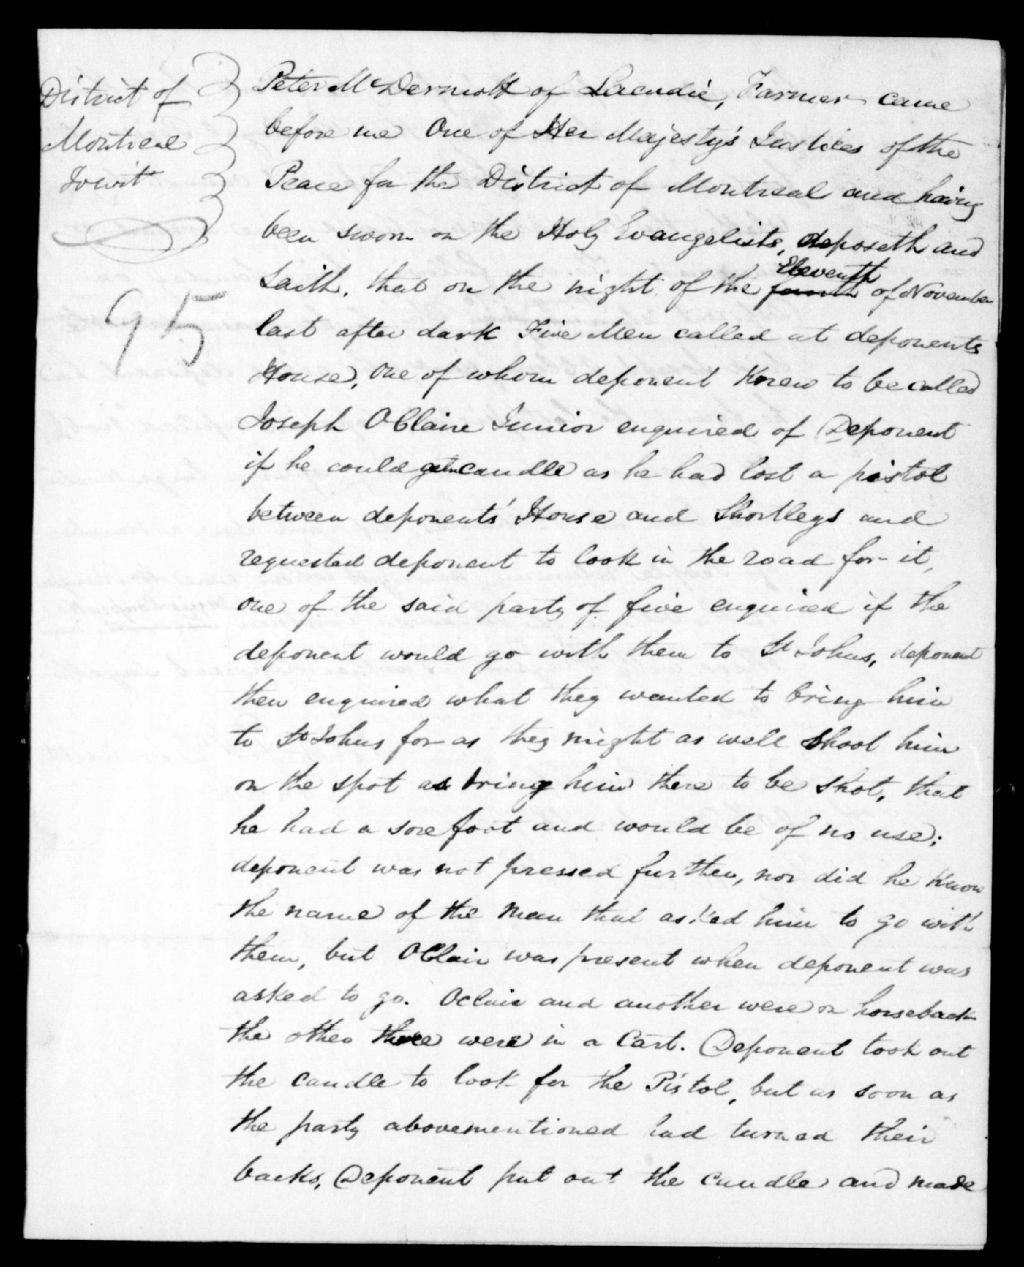 District of
Montreal
Towit
95
Peter McDermott of Lacadie, Farmer came
before me One of Her Majesty's Justices of the
Peace for the District of Montreal and having
been sworn on the Holy Evangelists, deposeth and
Eleventh
Saith. that on the night of the fourth of November
last after dark Five Men called at deponents
House, one of whom deponent Knew to be called
Joseph OClaire Junior enquired of Deponent
if he could get candle as he had lost a pistol
between deponents' House and Shortlegs and
requested deponent to look in the road for it,
one of the said party of five enquired if the
deponent would go with them to St Johns, deponent
then enquired what they wanted to bring him
to St Johns for as they might as well Shoot him
on the spot as bring him there to be shot, that
he had a sore foot and would be of no use;
deponent was not pressed further, nor did he Know
the name of the man that asked him to go with
them, but OClair was present when deponent was
asked to go. OClair and another were on horseback
the other three were in a Cart. Deponent took out
the candle to look for the Pistol, but as soon as
the party abovementioned had turned their
backs, Deponent put out the candle and made